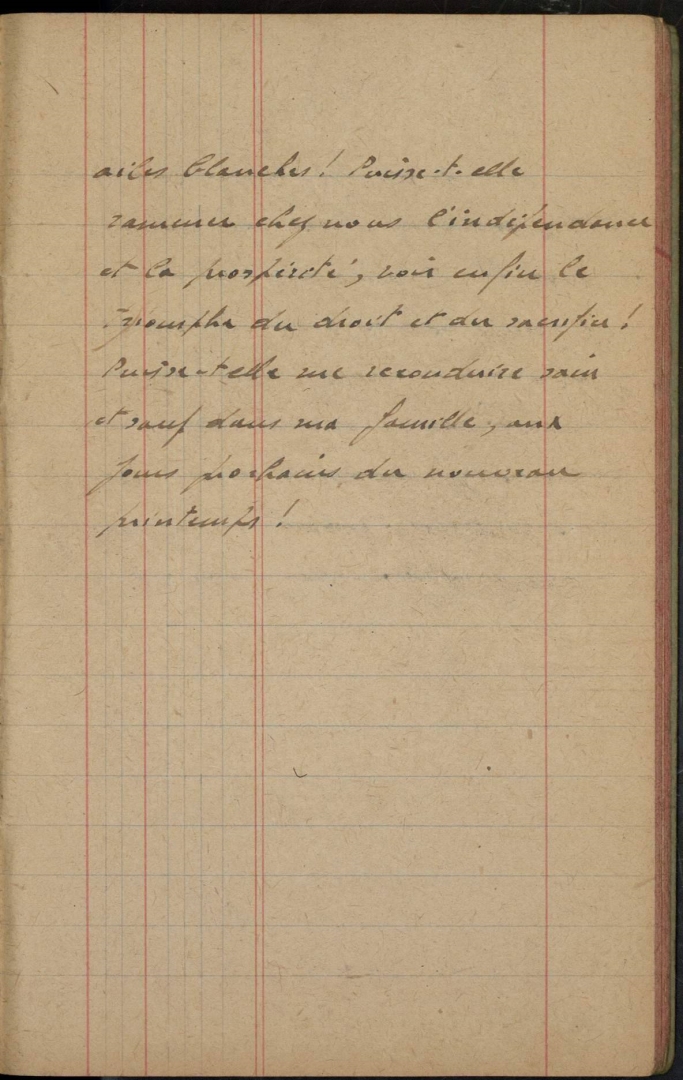 ailes blanches ! Puisse-t-elle
ramener chez nous l'indépendance
et la prospérité, voir enfin le
triomphe du droit et du sacrifice !
Puisse-t-elle me reconduire sain
et sauf dans ma famille, aux
jours prochains du nouveau
printemps !